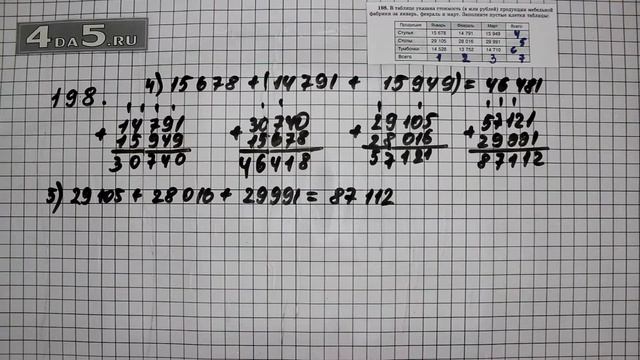 4DA5.RU
198. В таблице указана стоимость (в млн рублей) продукции мебельной
фабрики за январь, февраль и март. Заполните пустые клетки таблицы:
Продукция Январь Февраль Март Всего
Стулья 15 678 14 791 15 949 4
Столы 29 105 28 016 29 991 5
Тумбочки 14 528 13 752 14 710 6
Всего 1 2 3 7
198.
4) 15 678 + (14 791 + 15 949) = 46 481
14791 30740 29105 57121
+ 15949 + 15678 + 28016 + 29991
30740 46418 57121 87112
5) 29 105 + 28 016 + 29991 = 87 112